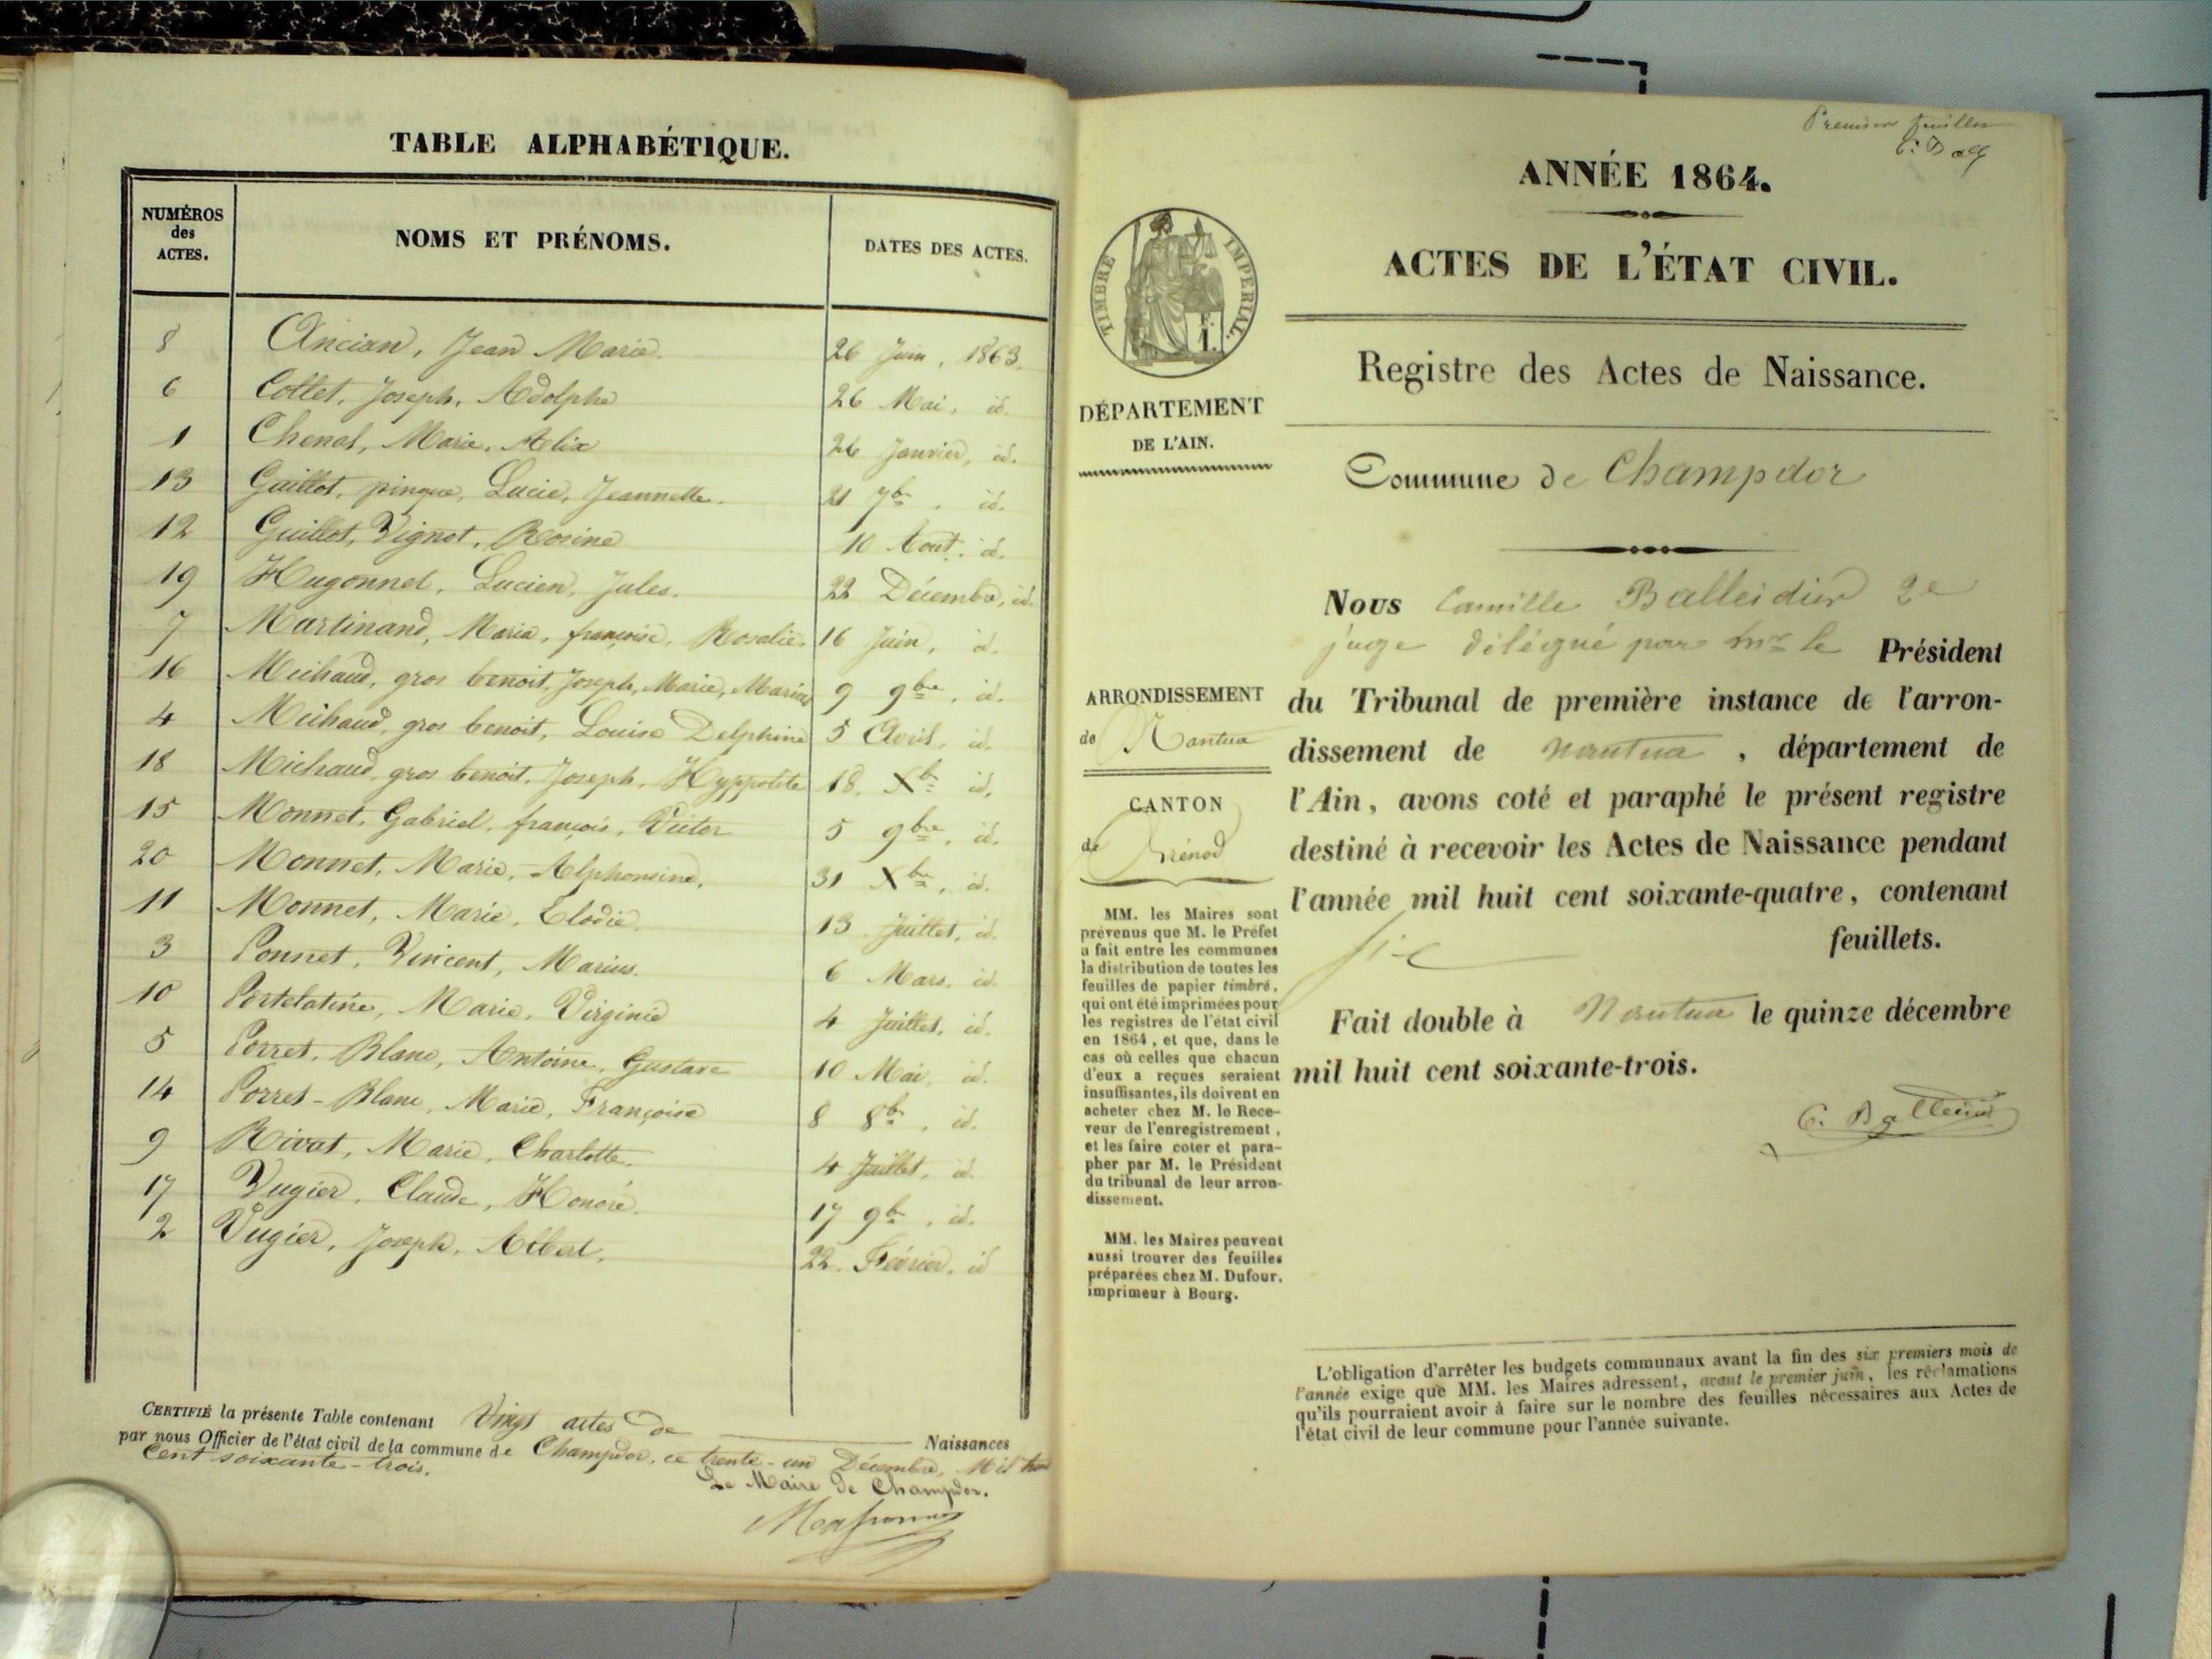 TABLE ALPHABÉTIQUE.
NUMÉROS
des
ACTES.
NOMS ET PRÉNOMS.
DATES DES ACTES.
8 Ancian, Jean Marie. 26 Juin, 1863.
6 Collet, Joseph, Adolphe 26 Mai, id.
1 Chenal, Marie, Alix 26 Janvier, id.
13 Guillot, pingue, Lucie, Jeannette. 21 7bre, id.
12 Guillot, Vignot, Rosine 10 Aout. id.
19 Hugonnet, Lucien, Jules. 22 Décembre, id.
7 Martinand, Maria, françoise, Rosalie. 16 Juin, id.
16 Michaud, gros benoit, Joseph, Marie, Marius 9 9bre, id.
4 Michaud, gros benoit, Louise Delphine 5 Avril, id.
18 Michaud, gros benoit, Joseph, Hyppolite 18. Xbre id.
15 Monnet, Gabriel, françois, Victor 5 9bre, id.
20 Monnet, Marie, Alphonsine, 31 Xbre, id.
11 Monnet, Marie, Elodie. 13 Juillet, id.
3 Ponnet, Vincent, Marius. 6 Mars, id.
10 Portelatine, Marie, Virginie 4 Juillet, id.
5 Porret, Blanc, Antoine, Gustave 10 Mai, id.
14 Porret-Blanc, Marie, Françoise 8 8bre, id.
9 Rivat, Marie, Charlotte. 4 Juillet, id.
17 Vugier, Claude, Honoré. 17 9bre, id.
2 Vugier, Joseph, Albert. 22. Février, id
CERTIFIÉ la présente Table contenant Vingt actes de Naissances
par nous Officier de l'état civil de la commune de Champdor, ce trente-un Décembre, Mil huit
Cent soixante-trois.
Le Maire de Champdor.
Premier feuillet
C. Ball
ANNÉE 1864.
ACTES DE L'ÉTAT CIVIL.
Registre des Actes de Naissance.
Commune de Champdor
TIMBRE IMPÉRIAL.
DÉPARTEMENT
DE L'AIN.
ARRONDISSEMENT
de Nantua
CANTON
de Brénod
MM. les Maires sont
prévenus que M. le Préfet
a fait entre les communes
la distribution de toutes les
feuilles de papier timbré,
qui ont été imprimées pour
les registres de l'état civil
en 1864, et que, dans le
cas où celles que chacun
d'eux a reçues seraient
insuffisantes, ils doivent en
acheter chez M. le Rece-
veur de l'enregistrement,
et les faire coter et para-
pher par M. le Président
du tribunal de leur arron-
dissement.
MM. les Maires peuvent
aussi trouver des feuilles
préparées chez M. Dufour,
imprimeur à Bourg.
Nous Camille Balleidier 2e
juge délégué par Mr le Président
du Tribunal de première instance de l'arron-
dissement de Nantua, département de
l'Ain, avons coté et paraphé le présent registre
destiné à recevoir les Actes de Naissance pendant
l'année mil huit cent soixante-quatre, contenant
six feuillets.
Fait double à Nantua le quinze décembre
mil huit cent soixante-trois.
C. Balleidier
L'obligation d'arrêter les budgets communaux avant la fin des six premiers mois de
l'année exige que MM. les Maires adressent, avant le premier juin, les réclamations
qu'ils pourraient avoir à faire sur le nombre des feuilles nécessaires aux Actes de
l'état civil de leur commune pour l'année suivante.